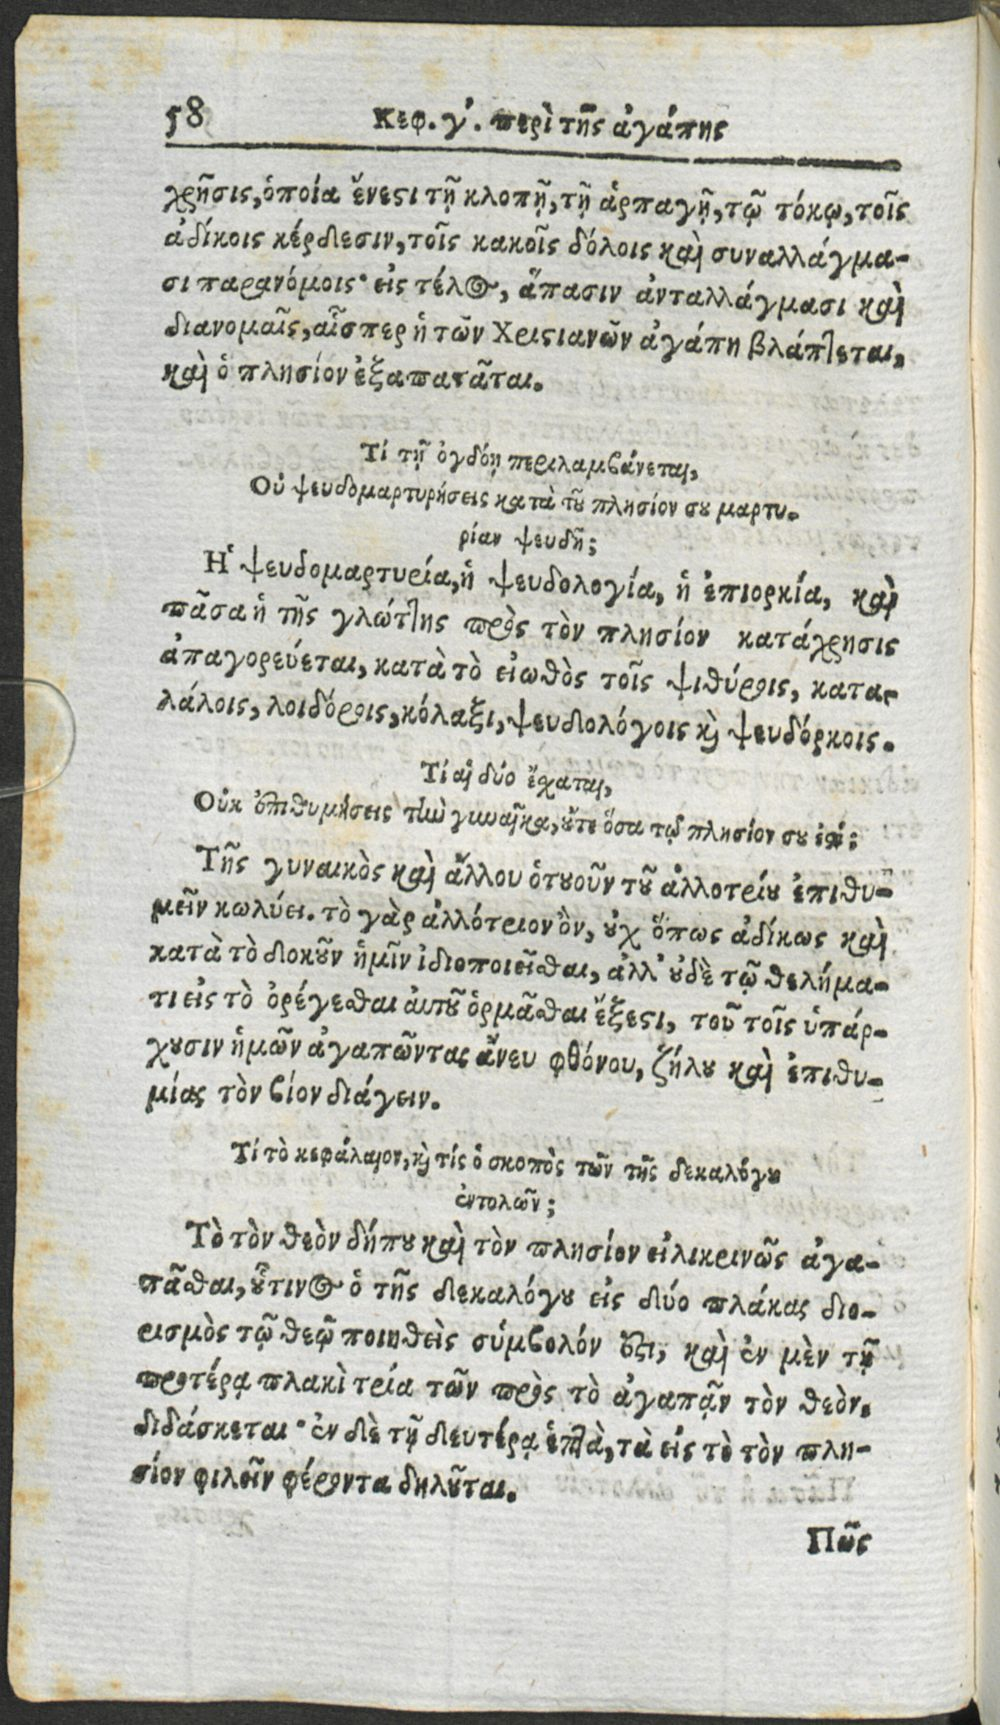 58 Κεφ. γ΄. περὶ τῆς ἀγάπης
χρῆσις, ὁποία ἔνεϛι τῇ κλοπῇ, τῇ ἁρπαγῇ, τῷ τόκῳ, τοῖς
ἀδίκοις κέρδεσιν, τοῖς κακοῖς δόλοις καὶ συναλλάγμα-
σι παρανόμοις· εἰς τέλος, ἅπασιν ἀνταλλάγμασι καὶ
διανομαῖς, αἷσπερ ἡ τῶν Χριϛιανῶν ἀγάπη βλάπτεται,
καὶ ὁ πλησίον ἐξαπατᾶται.
Τί τῇ ὀγδόῃ περιλαμβάνεται,
Οὐ ψευδομαρτυρήσεις κατὰ τȣ͂ πλησίον σȣ μαρτυ-
ρίαν ψευδῆ;
Ἡ ψευδομαρτυρία, ἡ ψευδολογία, ἡ ἐπιορκία, καὶ
πᾶσα ἡ τῆς γλώττης πρὸς τὸν πλησίον κατάχρησις
ἀπαγορεύεται, κατὰ τὸ εἰωθὸς τοῖς ψιθύροις, κατα-
λάλοις, λοιδόροις, κόλαξι, ψευδολόγοις ϗ ψευδόρκοις.
Τί αἱ δύο ἔχαται,
Οὐκ ἐπιθυμήσεις τὴν γυναῖκα, ȣ̓́τε ὅσα τῷ πλησίον σȣ ἐϛί;
Τῆς γυναικὸς καὶ ἄλλου ὁτȣοῦν τȣ͂ ἀλλοτρίȣ ἐπιθυ-
μεῖν κωλύει. τὸ γὰρ ἀλλότριον ὂν, ȣ̓χ ὅπως ἀδίκως καὶ
κατὰ τὸ δοκȣ͂ν ἡμῖν ἰδιοποιεῖσθαι, ἀλλ' ȣ̓δὲ τῷ θελήμα-
τι εἰς τὸ ὀρέγεσθαι αὐτȣ͂ ὁρμᾶσθαι ἔξεϛι, τοῦ τοῖς ὑπάρ-
χȣσιν ἡμῶν ἀγαπῶντας ἄνευ φθόνου, ζήλȣ καὶ ἐπιθυ-
μίας τὸν βίον διάγειν.
Τί τὸ κεφάλαιον, ϗ τίς ὁ σκοπὸς τῶν τῆς δεκαλόγȣ
ἐντολῶν;
Τὸ τὸν θεὸν δήπȣ καὶ τὸν πλησίον εἰλικρινῶς ἀγα-
πᾶσθαι, ȣ̔͂τινος ὁ τῆς δεκαλόγȣ εἰς δύο πλάκας διο-
ρισμὸς τῷ θεῷ ποιηθεὶς σύμβολόν ἐϛι, καὶ ἐν μὲν τῇ
προτέρᾳ πλακὶ τρία τῶν πρὸς τὸ ἀγαπᾷν τὸν θεὸν.
διδάσκεται· ἐν δὲ τῇ δευτέρᾳ ἑπτὰ, τὰ εἰς τὸ τὸν πλη-
σίον φιλεῖν φέροντα δηλȣ͂ται.
Πῶς